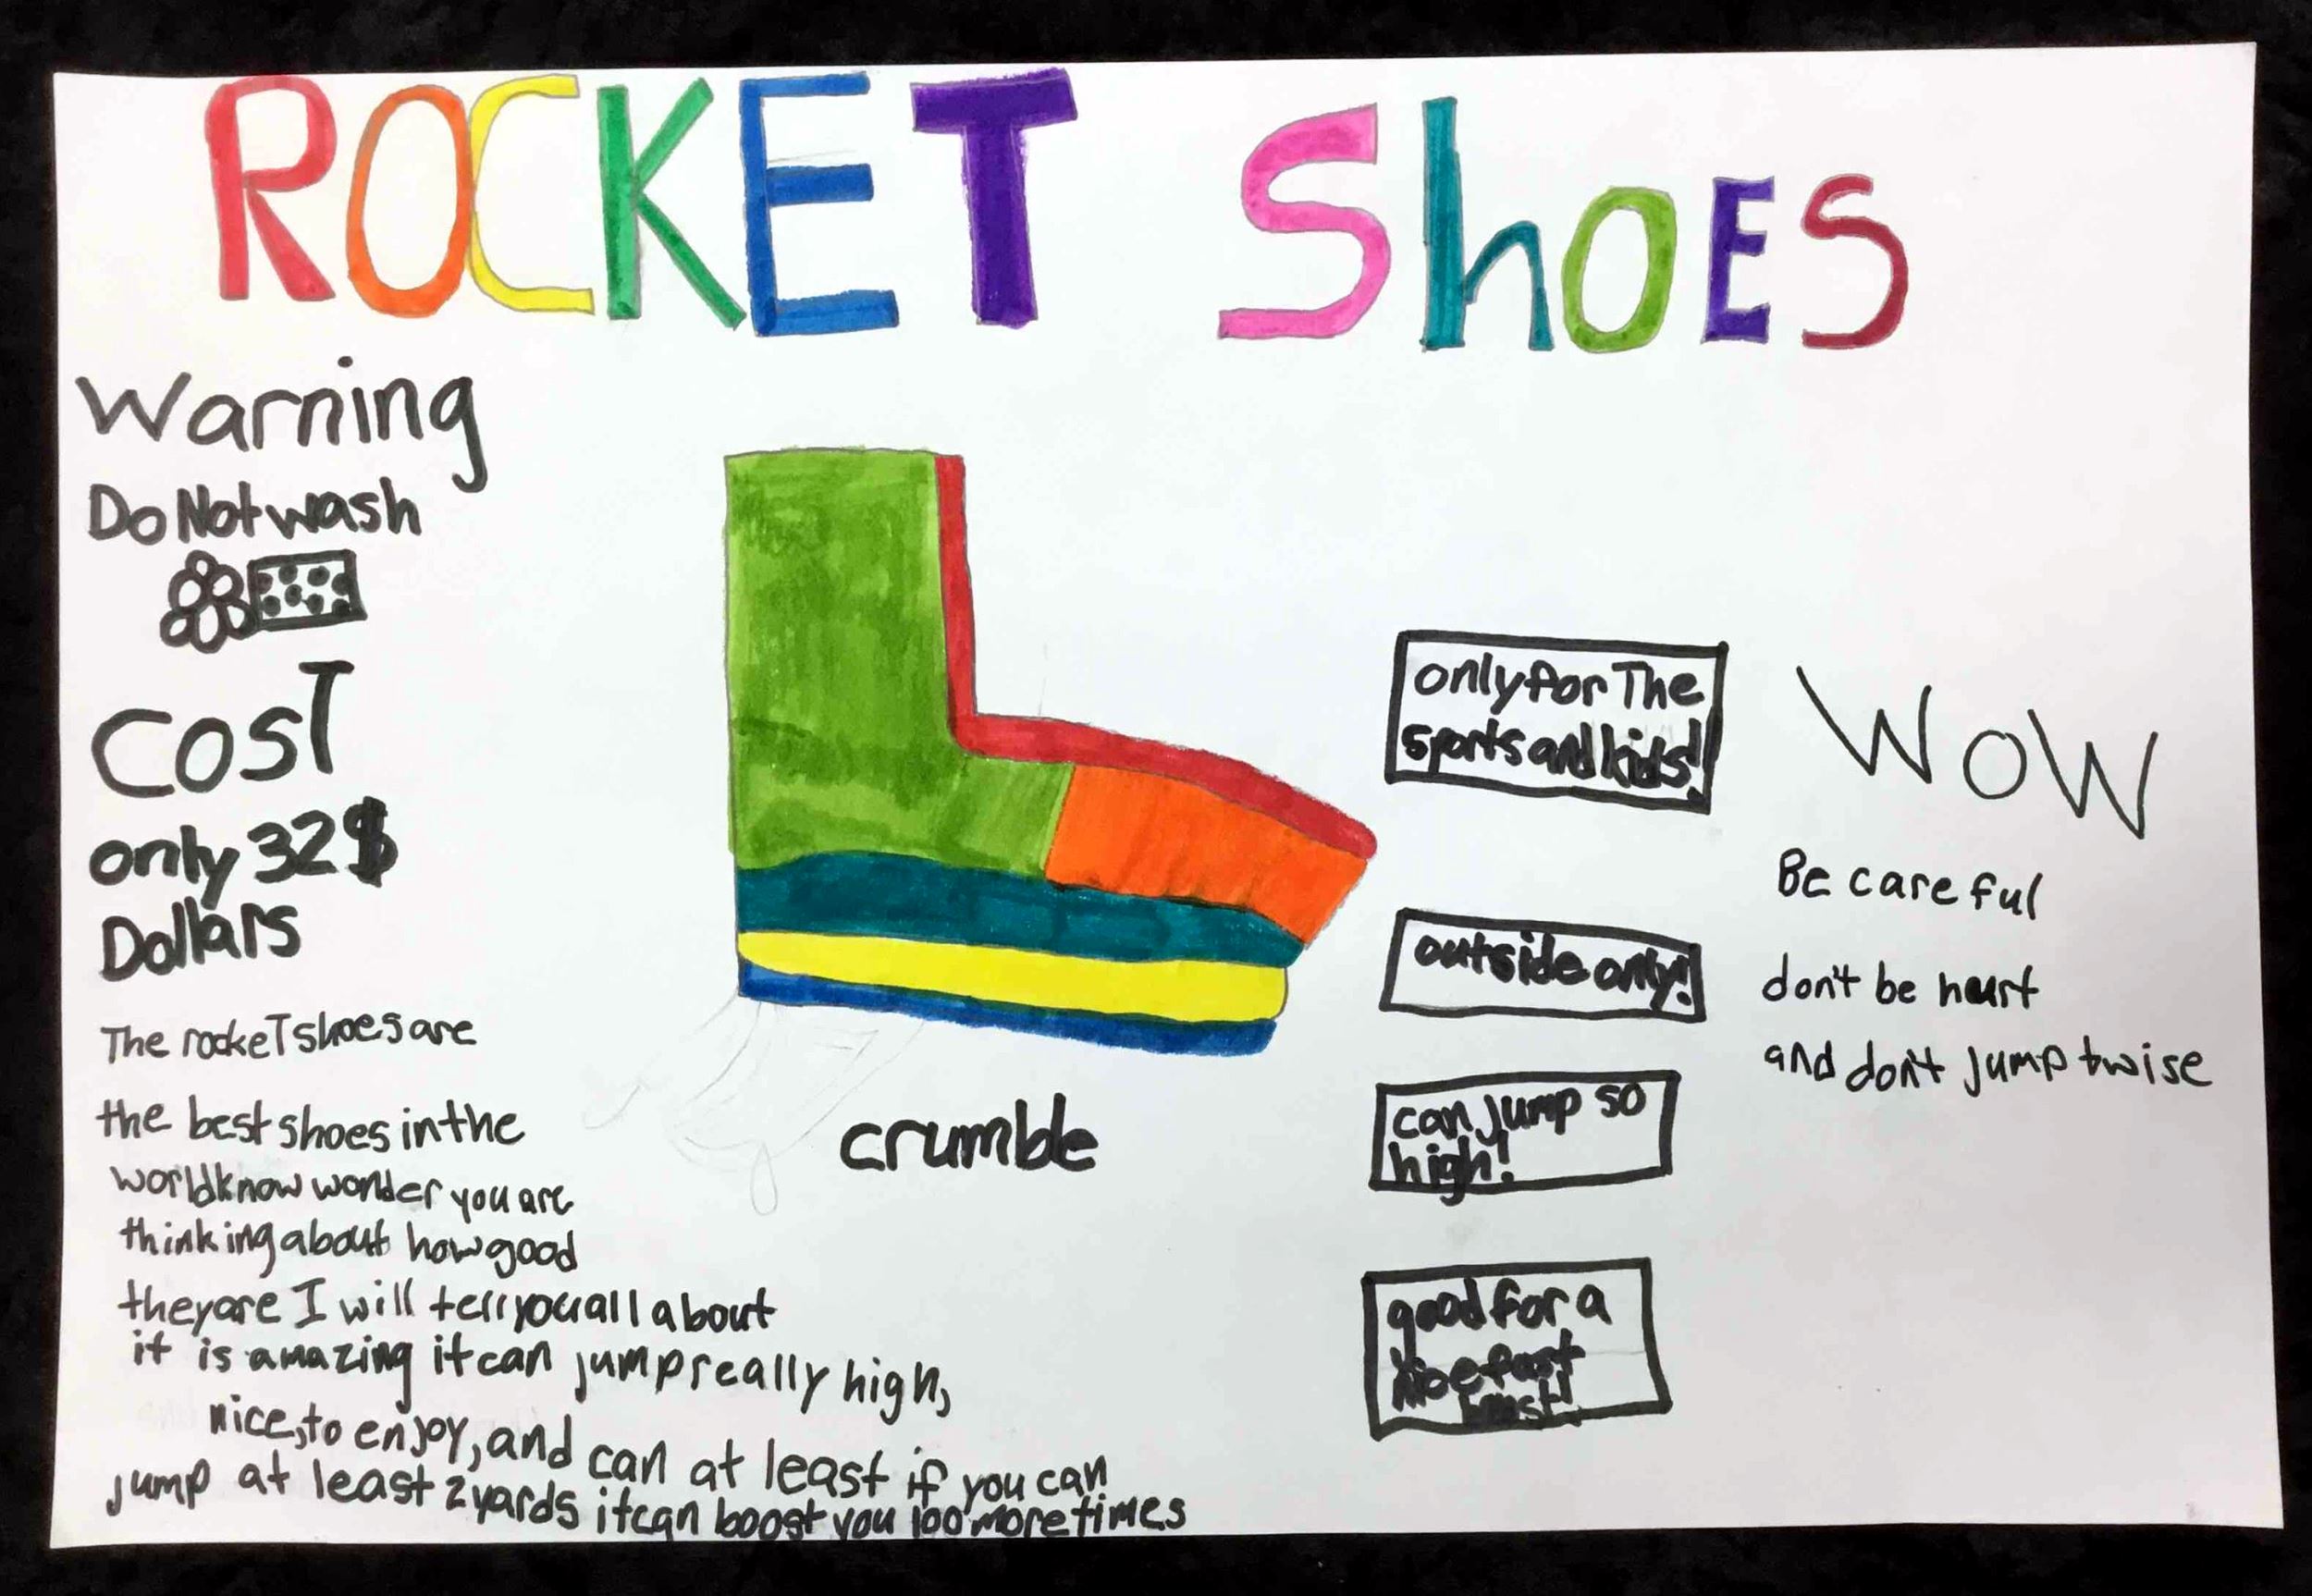 ROCKET ShOES
Warning
Do Not wash
COST
only 32$
Dollars
The rockeT shoes are
the best shoes in the
world know wonder you are
thinking about how good
they are I will tell you all about
it is amazing it can jump really high,
nice, to enjoy, and can at least if you can
jump at least 2 yards it can boost you 100 more times
crumble
only for The
sports and kids!
outside only!
can jump so
high!
good for a
fast
WOW
Be careful
don't be hurt
and don't jump twise